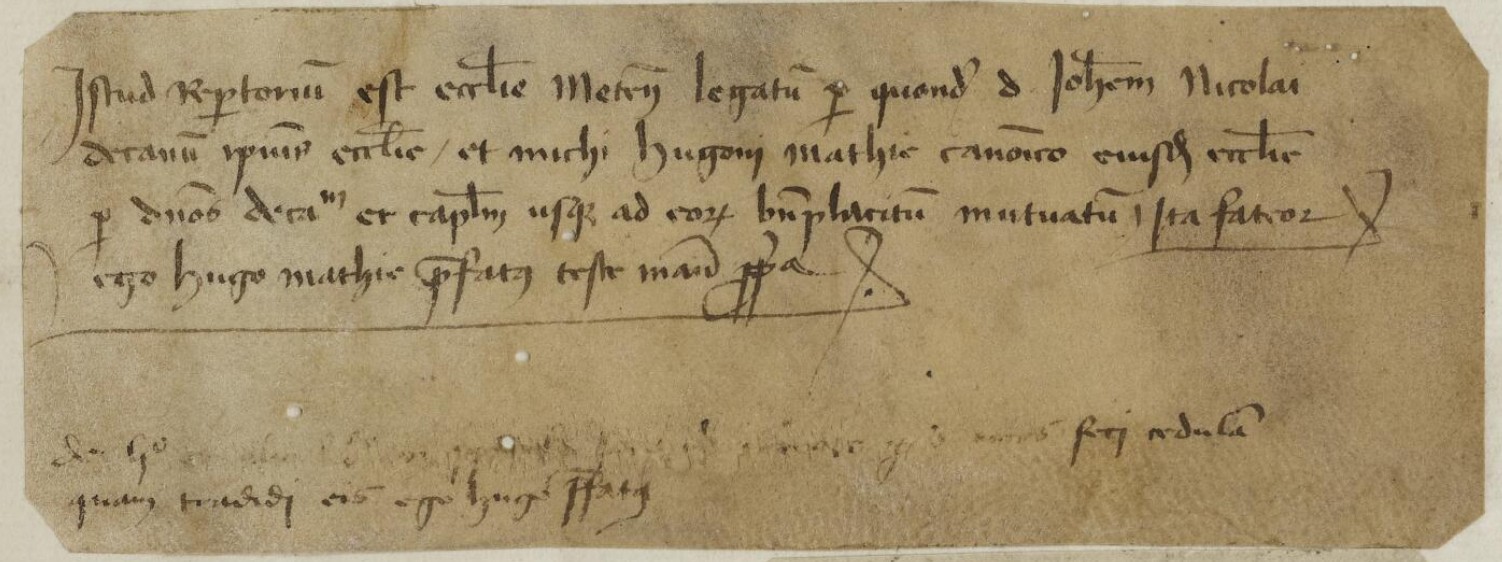 Istud Rep̱toriū est eccl̄ie Meteñ legatū ꝑ quond̄ d Joh̄em Nicolai
decanū ip̄ius eccl̄ie / et michi Hugoni Mathie canoīco eiusd̄ eccl̄ie
ꝑ dn̄os decaⁿᵐ et capl̄m usqꝫ ad eoꝝ bn̄placitū mutuatū / Ita fateor
ego Hugo Mathie p̄fatꝰ teste manū ꝓpͥa
de hͦ feci cedulā
quam tradidi eis ego hugo p̄fatꝰ